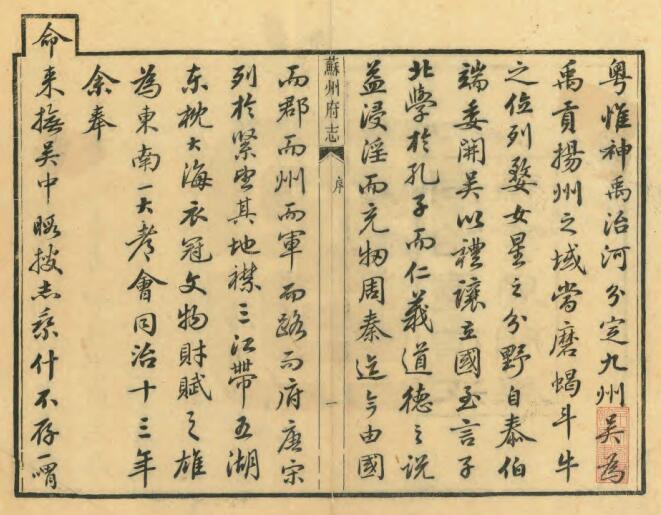 粤惟神禹治河分定九州吴為
禹貢揚州之域當磨蝎斗牛
之位列婺女星之分野自泰伯
端委開吴以禮讓立國至言子
北學於孔子而仁義道德之説
益浸淫而充牣周秦迄今由國
蘇州府志
序
一
而郡而州而軍而路而府唐宋
列於緊望其地襟三江帶五湖
東枕大海衣冠文物財賦之雄
為東南一大都會同治十三年
余奉
命来撫吴中暇披志乘什不存一喟